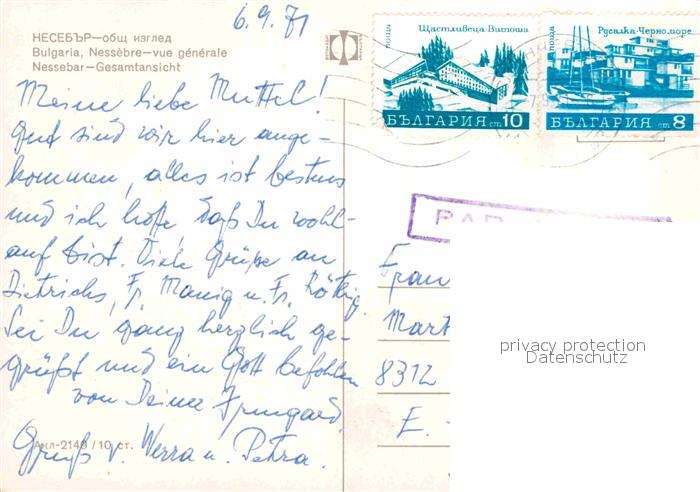 6.9.71
НЕСЕБЪР—общ изглед
Bulgaria, Nessèbre—vue générale
Nessebar—Gesamtansicht
Meine liebe Muttel!
Gut sind wir hier ange-
kommen, alles ist bestens
und ich hoffe, daß Du wohl-
auf bist. Viele Grüße an
Dietrichs, Fr. Manig u. Fr.
Sei Du ganz herzlich ge-
grüßt und ein Gott befohlen
von Deiner Irmgard.
Gruß v. Werra u. Petra.
Акл-2149/10 ст.
поща
Щастливеца-Витоша
БЪЛГАРИЯ ст 10
поща
Русалка-Черно море
БЪЛГАРИЯ ст 8
PAR
Frau
Mart
8312
E.
privacy protection
Datenschutz